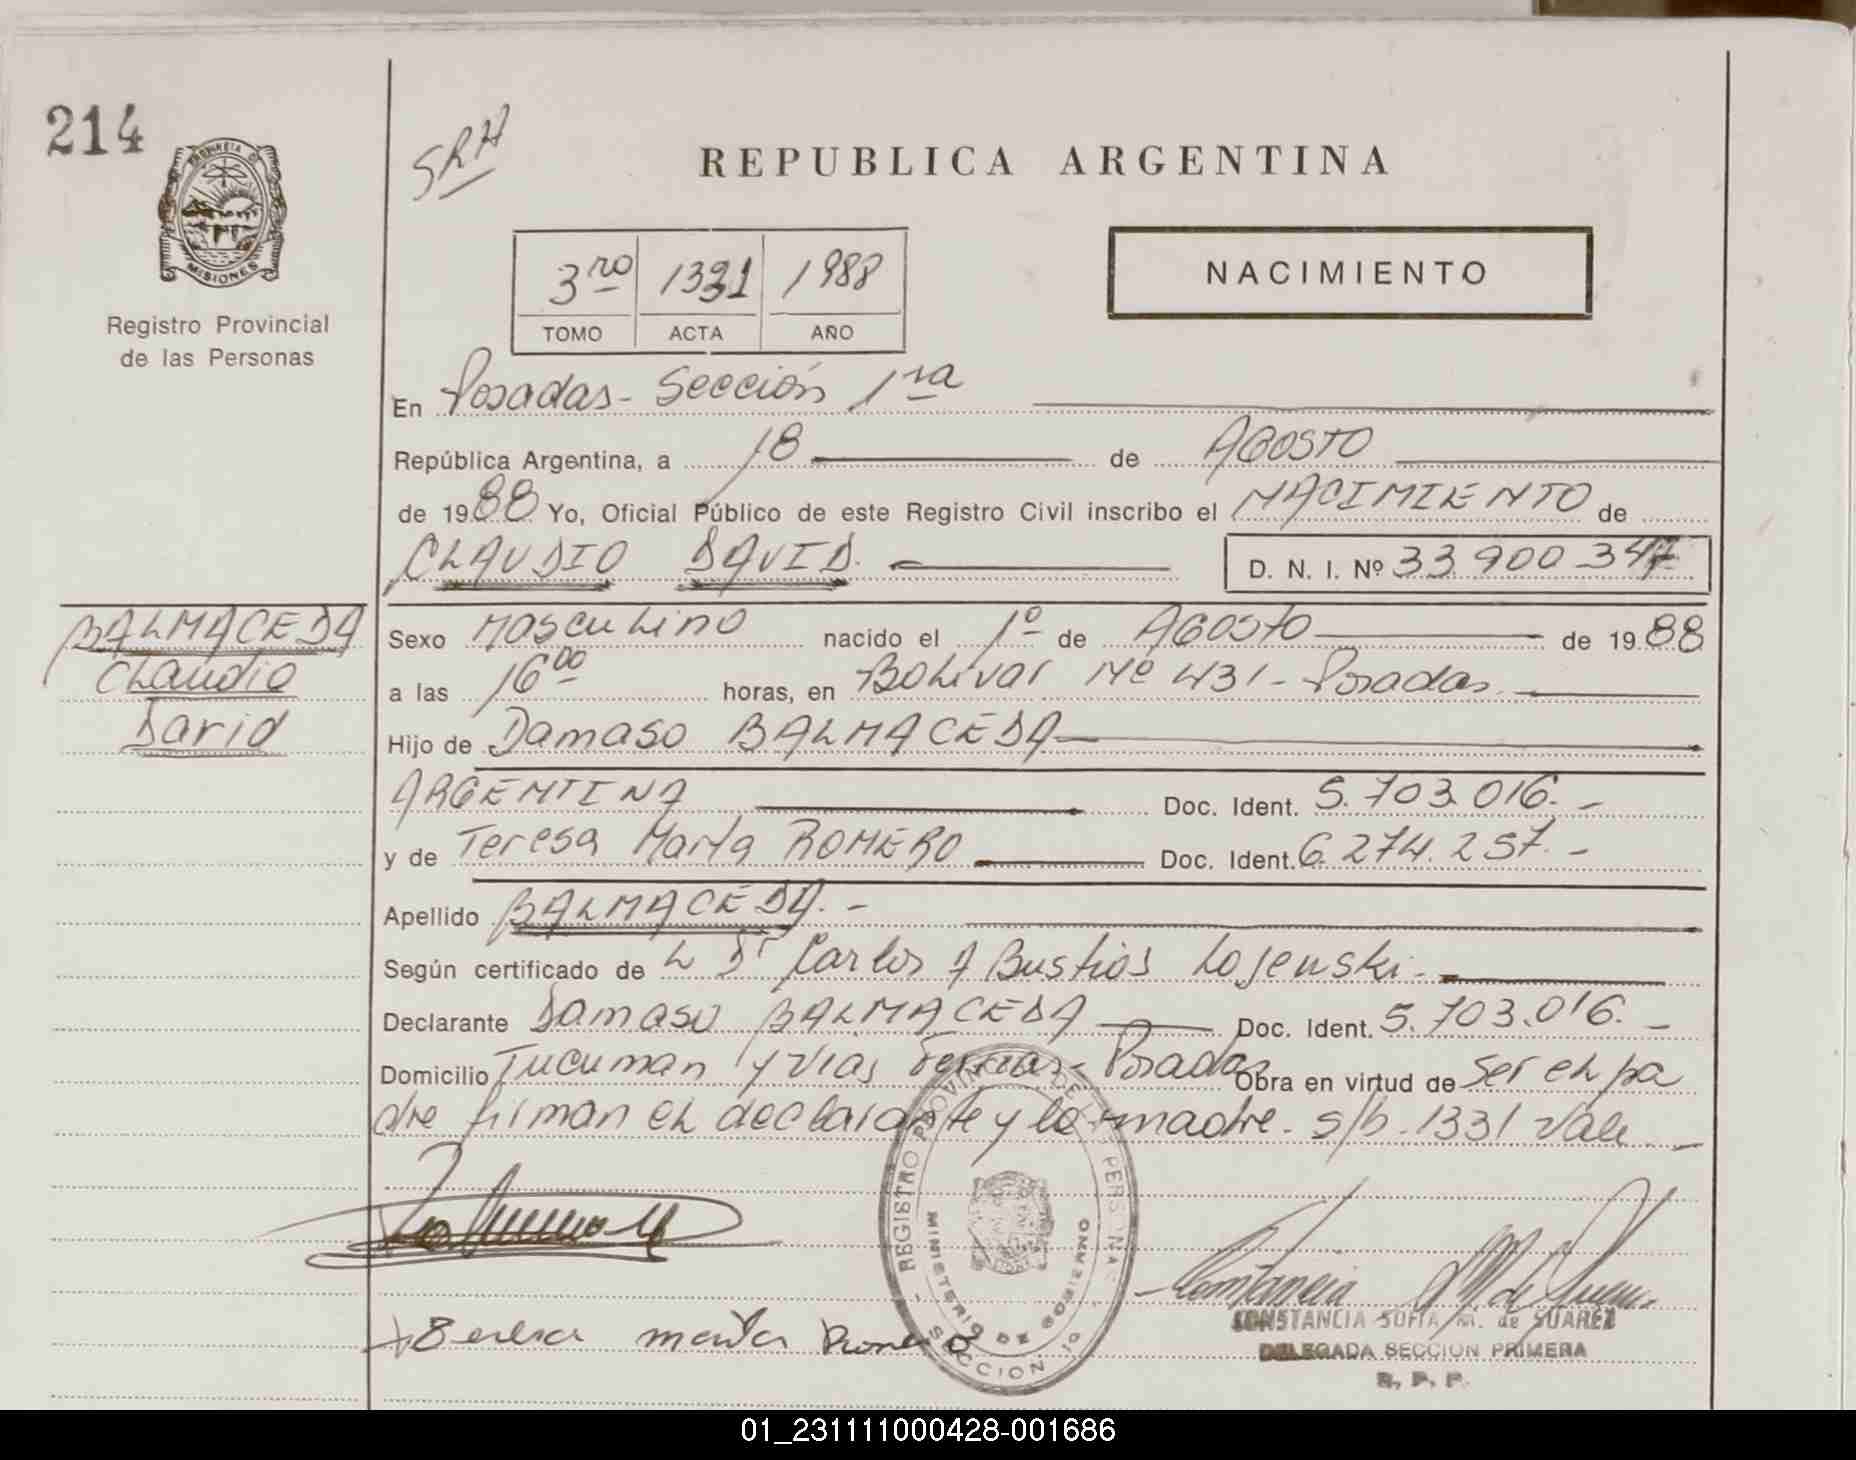 214
SRH
PROVINCIA DE
MISIONES
Registro Provincial
de las Personas
REPUBLICA ARGENTINA
3ro 1331 1988
TOMO ACTA AÑO
NACIMIENTO
En Posadas - Sección 1ra
República Argentina, a 18 de AGOSTO
de 1988 Yo, Oficial Público de este Registro Civil inscribo el NACIMIENTO de
CLAUDIO DAVID. D. N. I. Nº 33.900.347
BALMACEDA
Claudio
David
Sexo Masculino nacido el 1º de AGOSTO de 1988
a las 16 00 horas, en Bolivar Nº 431 - Posadas.
Hijo de Damaso BALMACEDA
ARGENTINA Doc. Ident. 5.703.016. -
y de Teresa Marta ROMERO Doc. Ident. 6.274.257. -
Apellido BALMACEDA. -
Según certificado de L Dr Carlos A Bustios Losenski.
Declarante Damaso BALMACEDA Doc. Ident. 5.703.016. -
Domicilio Tucuman y vias Ferreas - Posadas Obra en virtud de ser el pa
dre firman el declarante y la madre. s/b. 1331 Vale -
REGISTRO PROVINCIAL DE LAS PERSONAS
MINISTERIO DE GOBIERNO
SECCION 1a
Teresa marta Romero
Constancia M de Suarez
CONSTANCIA SOFIA M. de SUAREZ
DELEGADA SECCION PRIMERA
R. P. P.
01_231111000428-001686